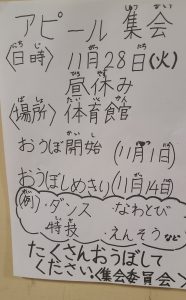 アピール 集会
〈日時〉 11月28日(火)
昼休み
〈場所〉 体育館
おうぼ開始 (11月1日)
おうぼしめきり(11月14日)
(例)・ダンス ・なわとび
・特技 ・えんそう など
たくさんおうぼして
ください。〈集会委員会〉